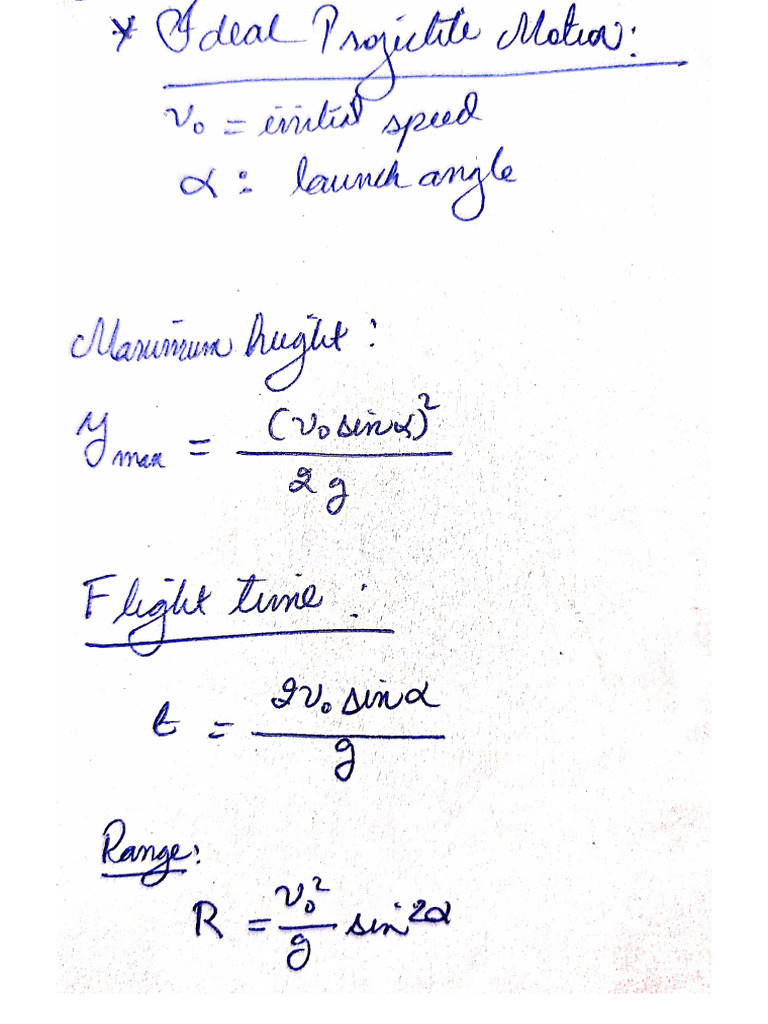 * Ideal Projectile Motion:
v₀ = initial speed
α : launch angle
Maximum height :
y_max = (v₀ sin α)² / 2g
Flight time :
t = 2v₀ sin α / g
Range:
R = v₀² / g sin 2α